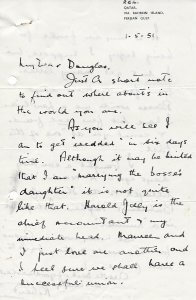 QATAR,
VIA BAHREIN ISLAND,
PERSIAN GULF
1-5-51
My Dear Douglas,
Just a short note
to find out where abouts in
the world you are.
As you will see I
am to get wedded in six days
time. Although it may be hinted
that I am "marrying the bosses
daughter" it is not quite
like that. Harold Jelly is the
chief accountant & my
immediate head. Maureen and
I just love one another and
I feel sure we shall have a
successful union.